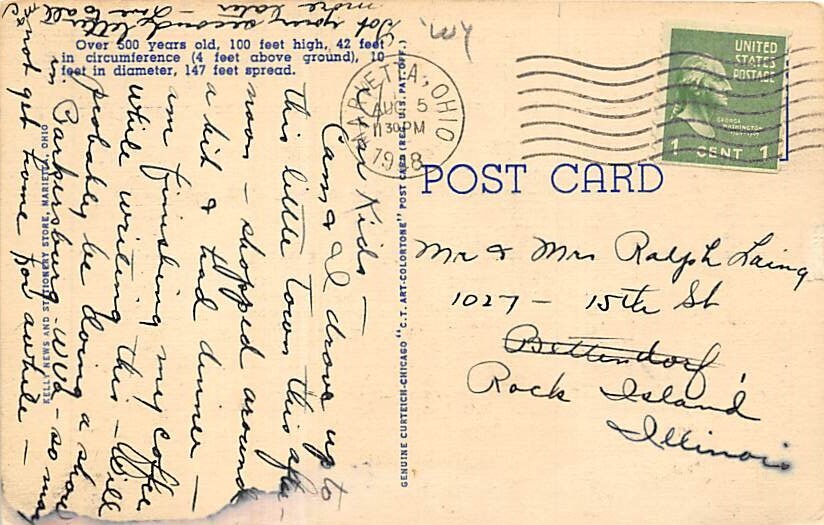 Over 500 years old, 100 feet high, 42 feet
in circumference (4 feet above ground), 10
feet in diameter, 147 feet spread.
Dear Kids —
Cam & I drove up to
this little town this after-
noon — shopped around
a bit & had dinner —
am finishing my coffee
while writing this — Will
probably be doing a show
in Parkersburg W Va — so may
not get home for awhile —
Got your second letter
more later — Love to all
KELLY NEWS AND STATIONERY STORE, MARIETTA, OHIO
GENUINE CURTEICH-CHICAGO "C. T. ART-COLORTONE" POST CARD (REG. U.S. PAT. OFF.)
MARIETTA, OHIO
AUG 5
11 30 PM
1948
UNITED
STATES
POSTAGE
GEORGE
WASHINGTON
1 CENT 1
POST CARD
Mr & Mrs Ralph Laing
1027 — 15th St
Bettendorf,
Rock Island
Illinois